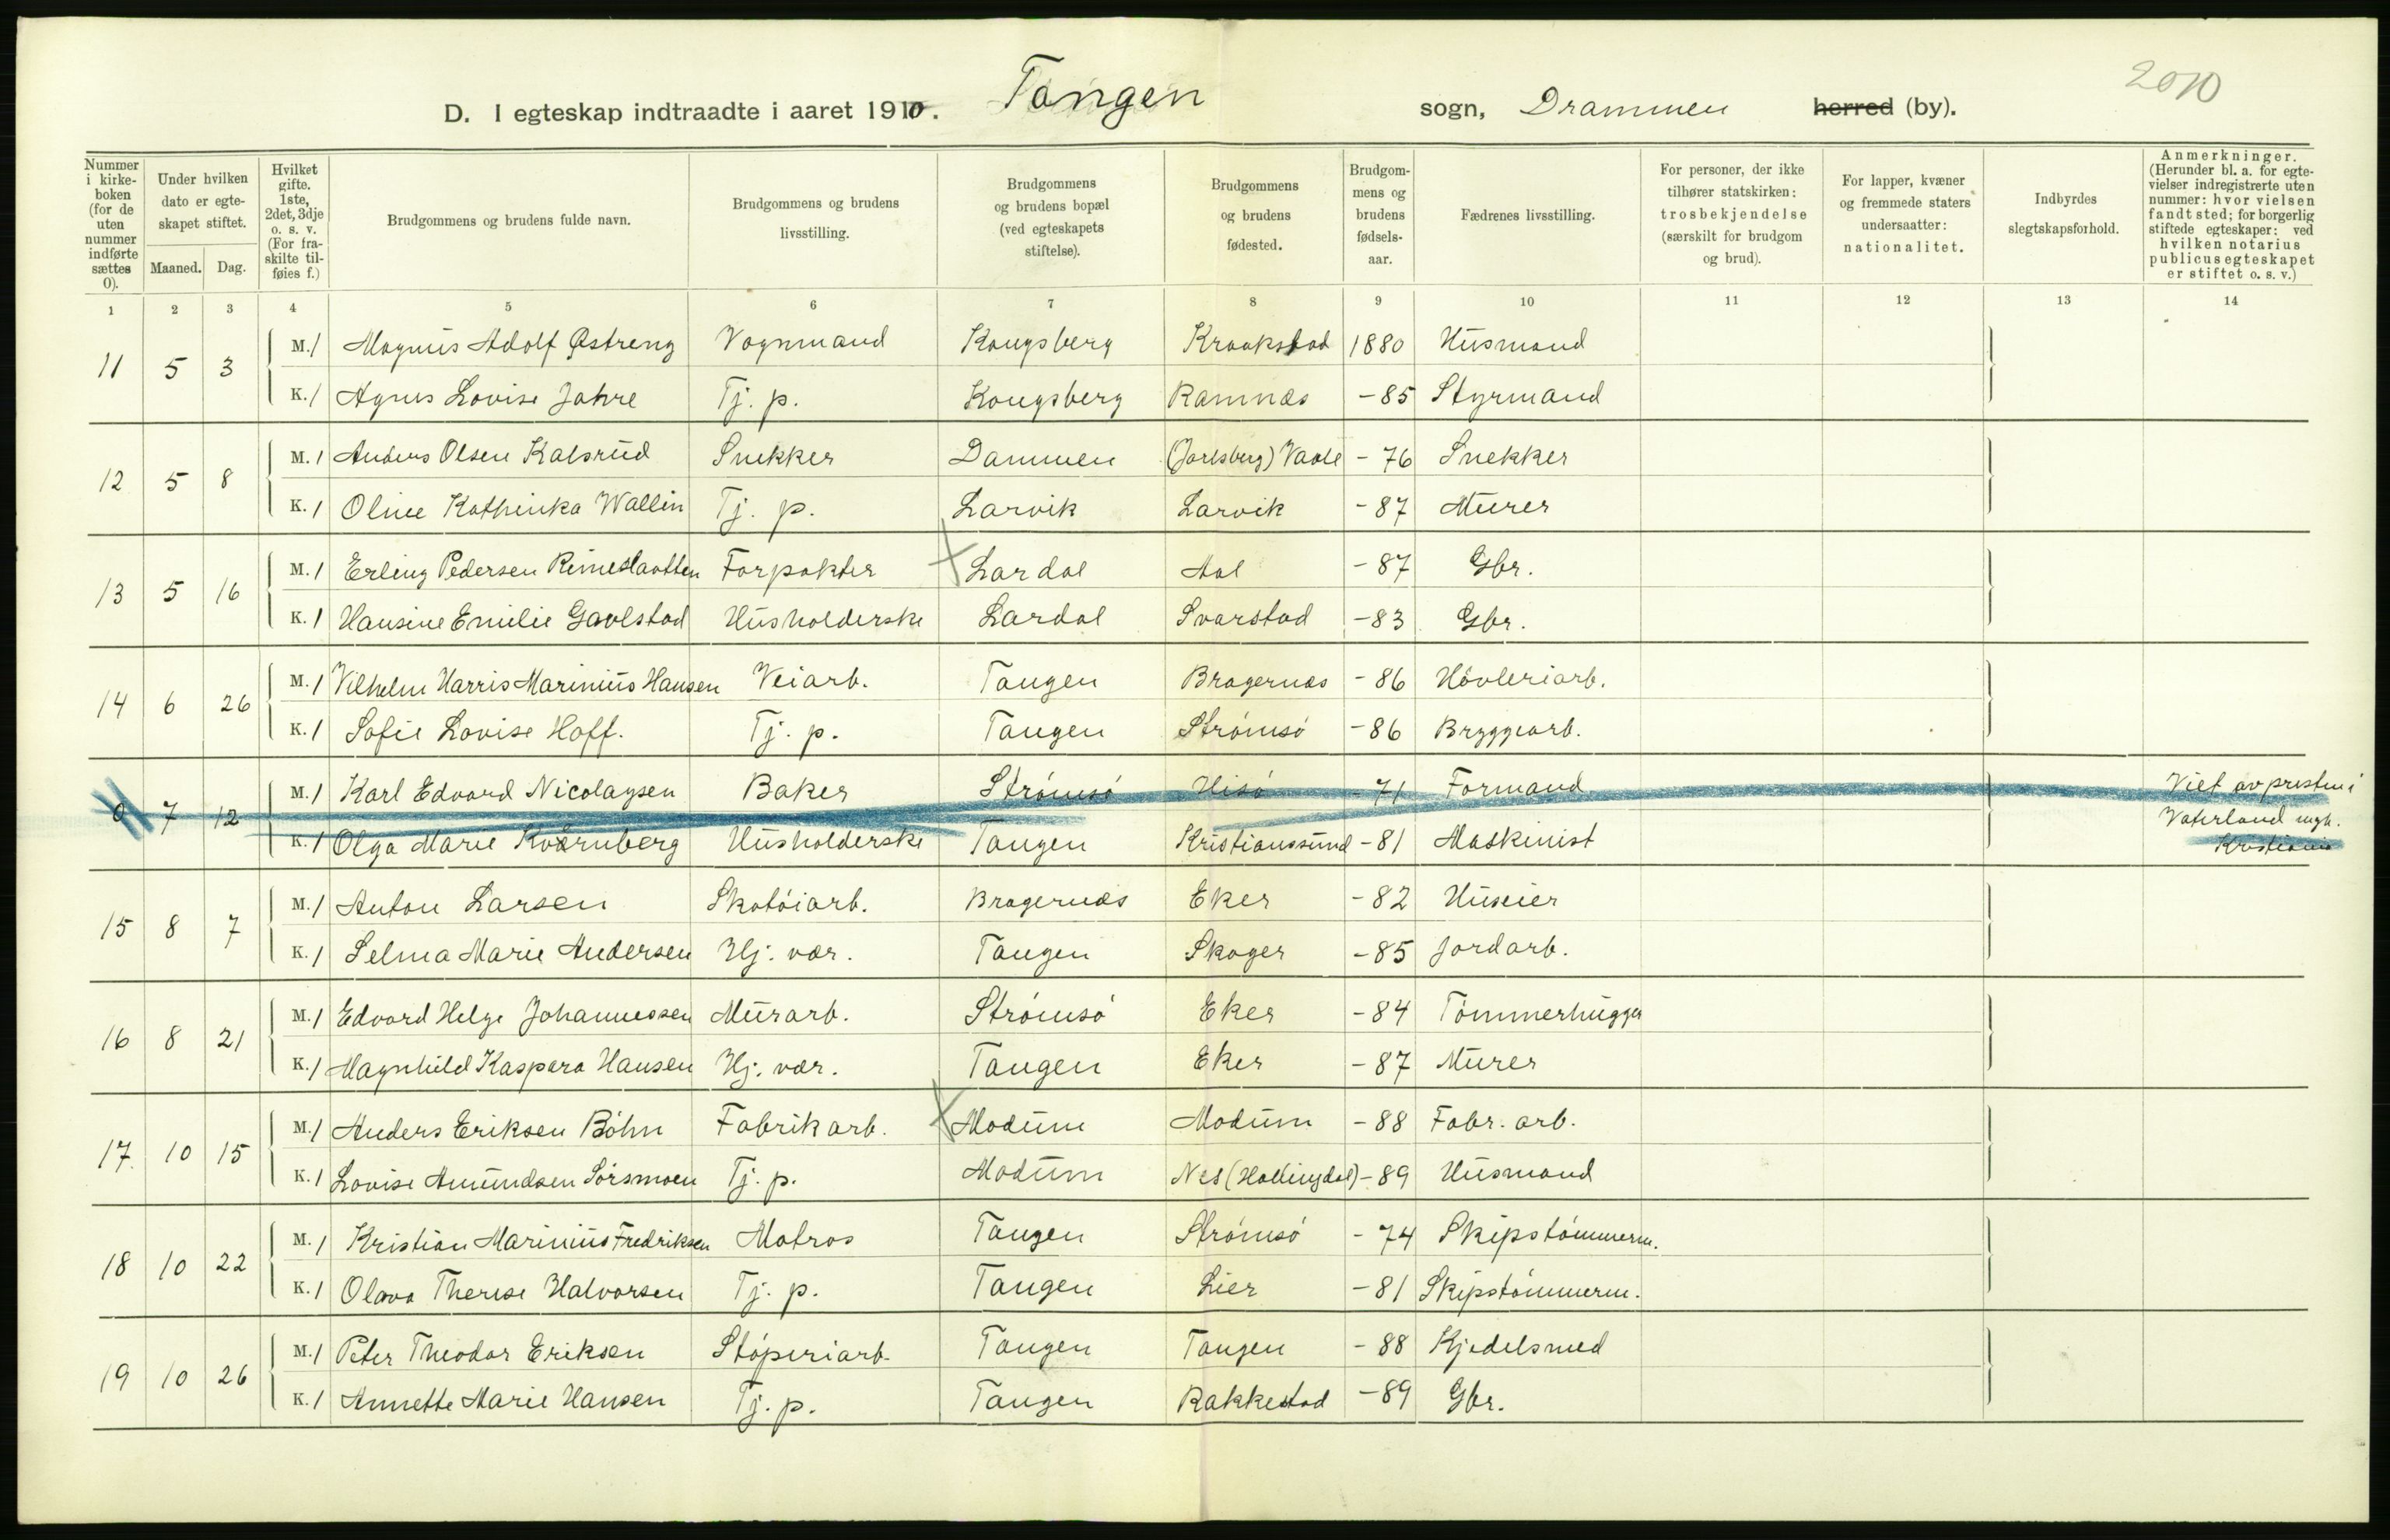 2010
D. I egteskap indtraadte i aaret 1910. Tangen sogn, Drammen herred (by).
Nummer i kirkeboken (for de uten nummer indførte sættes 0).
Under hvilken dato er egteskapet stiftet.
Maaned. Dag.
Hvilket gifte. 1ste, 2det, 3dje o. s. v. (For fraskilte tilføies f.)
Brudgommens og brudens fulde navn.
Brudgommens og brudens livsstilling.
Brudgommens og brudens bopæl (ved egteskapets stiftelse).
Brudgommens og brudens fødested.
Brudgommens og brudens fødselsaar.
Fædrenes livsstilling.
For personer, der ikke tilhører statskirken: trosbekjendelse (særskilt for brudgom og brud).
For lapper, kvæner og fremmede staters undersaatter: nationalitet.
Indbyrdes slegtskapsforhold.
Anmerkninger. (Herunder bl. a. for egtevielser indregistrerte uten nummer: hvor vielsen fandt sted; for borgerlig stiftede egteskaper: ved hvilken notarius publicus egteskapet er stiftet o. s. v.)
1 2 3 4 5 6 7 8 9 10 11 12 13 14
11 5 3 M. 1 Magnus Adolf Østreng Vognmand Kongsberg Kraakstad 1880 Husmand
K. 1 Agnes Lovise Jahre Tj. p. Kongsberg Ramnæs -85 Styrmand
12 5 8 M. 1 Anders Olsen Kalsrud Snekker Dammen (Jarlsberg) Vaale - 76 Snekker
K. 1 Oline Kathinka Wallin Tj. p. Larvik Larvik -87 Murer
13 5 16 M. 1 Erling Pedersen Rimeslaatten Forpakter Lardal Aal -87 Gbr.
K. 1 Hansine Emilie Gavlstad Husholderske Lardal Svarstad -83 Gbr.
14 6 26 M. 1 Vilhelm Harris Marinius Hansen Veiarb. Tangen Bragernæs -86 Høvleriarb.
K. 1 Sofie Lovise Hoff. Tj. p. Tangen Strømsø -86 Bryggearb.
0 7 12 M. 1 Karl Edvard Nicolaysen Baker Strømsø Hisø -71 Formand Viet av presten i
K. 1 Olga Marie Kværnberg Husholderske Tangen Kristianssund -81 Maskinist Vaterland mgh. Kristiania
15 8 7 M. 1 Anton Larsen Skotøiarb. Bragernæs Eker -82 Huseier
K. 1 Selma Marie Andersen Hj. vær. Tangen Skoger -85 Jordarb.
16 8 21 M. 1 Edvard Helge Johannessen Murarb. Strømsø Eker -84 Tømmerhugger
K. 1 Magnhild Kaspara Hansen Hj. vær. Tangen Eker -87 Murer
17. 10 15 M. 1 Anders Eriksen Bøhn Fabrikarb. Modum Modum -88 Fabr. arb.
K. 1 Lovise Amundsen Sørsmoen Tj. p. Modum Nes (Hallingdal) -89 Husmand
18 10 22 M. 1 Kristian Marinius Fredriksen Matros Tangen Strømsø - 74 Skipstømmerm.
K. 1 Olava Therese Halvorsen Tj. p. Tangen Lier -81 Skipstømmerm.
19 10 26 M. 1 Peter Theodor Eriksen Støperiarb. Tangen Tangen -88 Kjedelsmed
K. 1 Annette Marie Hansen Tj. p. Tangen Rakkestad -89 Gbr.